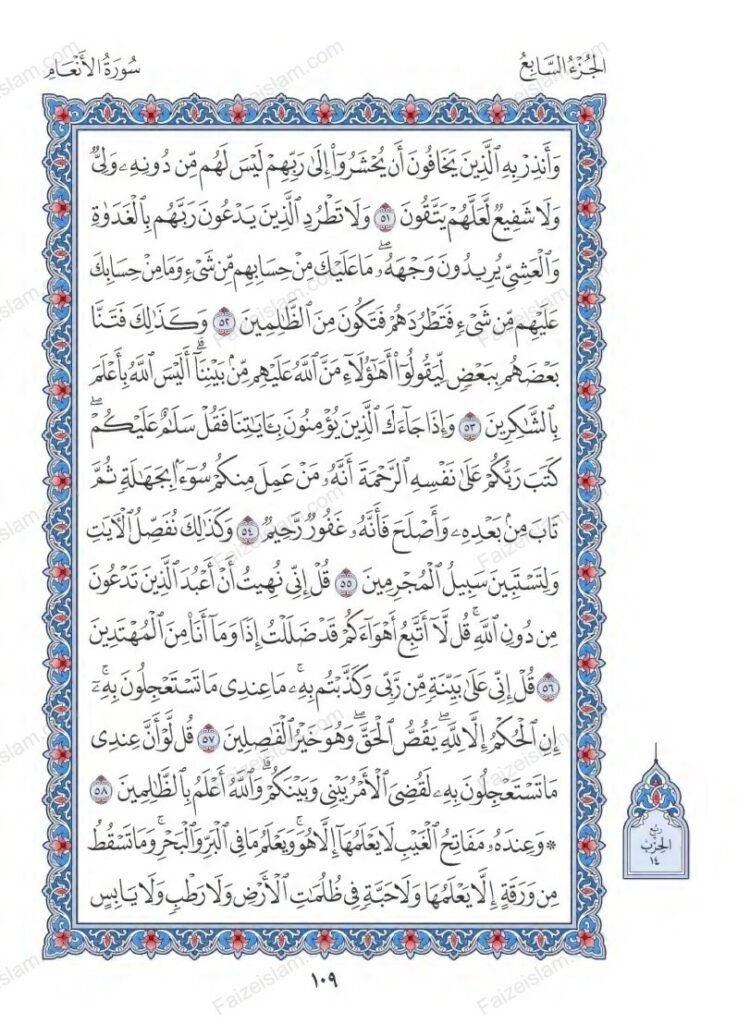 الجُزْءُ السَّابِعُ
سُورَةُ الأَنْعَامِ
وَأَنذِرْ بِهِ ٱلَّذِينَ يَخَافُونَ أَن يُحْشَرُوٓا۟ إِلَىٰ رَبِّهِمْ لَيْسَ لَهُم مِّن دُونِهِۦ وَلِىٌّ
وَلَا شَفِيعٌ لَّعَلَّهُمْ يَتَّقُونَ ٥١ وَلَا تَطْرُدِ ٱلَّذِينَ يَدْعُونَ رَبَّهُم بِٱلْغَدَوٰةِ
وَٱلْعَشِىِّ يُرِيدُونَ وَجْهَهُۥ ۖ مَا عَلَيْكَ مِنْ حِسَابِهِم مِّن شَىْءٍ وَمَا مِنْ حِسَابِكَ
عَلَيْهِم مِّن شَىْءٍ فَتَطْرُدَهُمْ فَتَكُونَ مِنَ ٱلظَّـٰلِمِينَ ٥٢ وَكَذَٰلِكَ فَتَنَّا
بَعْضَهُم بِبَعْضٍ لِّيَقُولُوٓا۟ أَهَـٰٓؤُلَآءِ مَنَّ ٱللَّهُ عَلَيْهِم مِّنۢ بَيْنِنَآ ۗ أَلَيْسَ ٱللَّهُ بِأَعْلَمَ
بِٱلشَّـٰكِرِينَ ٥٣ وَإِذَا جَآءَكَ ٱلَّذِينَ يُؤْمِنُونَ بِـَٔايَـٰتِنَا فَقُلْ سَلَـٰمٌ عَلَيْكُمْ ۖ
كَتَبَ رَبُّكُمْ عَلَىٰ نَفْسِهِ ٱلرَّحْمَةَ ۖ أَنَّهُۥ مَنْ عَمِلَ مِنكُمْ سُوٓءًۢا بِجَهَـٰلَةٍ ثُمَّ
تَابَ مِنۢ بَعْدِهِۦ وَأَصْلَحَ فَأَنَّهُۥ غَفُورٌ رَّحِيمٌ ٥٤ وَكَذَٰلِكَ نُفَصِّلُ ٱلْـَٔايَـٰتِ
وَلِتَسْتَبِينَ سَبِيلُ ٱلْمُجْرِمِينَ ٥٥ قُلْ إِنِّى نُهِيتُ أَنْ أَعْبُدَ ٱلَّذِينَ تَدْعُونَ
مِن دُونِ ٱللَّهِ ۚ قُل لَّآ أَتَّبِعُ أَهْوَآءَكُمْ ۙ قَدْ ضَلَلْتُ إِذًا وَمَآ أَنَا۠ مِنَ ٱلْمُهْتَدِينَ
٥٦ قُلْ إِنِّى عَلَىٰ بَيِّنَةٍ مِّن رَّبِّى وَكَذَّبْتُم بِهِۦ ۚ مَا عِندِى مَا تَسْتَعْجِلُونَ بِهِۦٓ ۚ
إِنِ ٱلْحُكْمُ إِلَّا لِلَّهِ ۖ يَقُصُّ ٱلْحَقَّ ۖ وَهُوَ خَيْرُ ٱلْفَـٰصِلِينَ ٥٧ قُل لَّوْ أَنَّ عِندِى
مَا تَسْتَعْجِلُونَ بِهِۦ لَقُضِىَ ٱلْأَمْرُ بَيْنِى وَبَيْنَكُمْ ۗ وَٱللَّهُ أَعْلَمُ بِٱلظَّـٰلِمِينَ ٥٨
* وَعِندَهُۥ مَفَاتِحُ ٱلْغَيْبِ لَا يَعْلَمُهَآ إِلَّا هُوَ ۚ وَيَعْلَمُ مَا فِى ٱلْبَرِّ وَٱلْبَحْرِ ۚ وَمَا تَسْقُطُ
مِن وَرَقَةٍ إِلَّا يَعْلَمُهَا وَلَا حَبَّةٍ فِى ظُلُمَـٰتِ ٱلْأَرْضِ وَلَا رَطْبٍ وَلَا يَابِسٍ
رُبْعُ
الحِزْبُ
١٤
١٠٩
Faizeislam.com